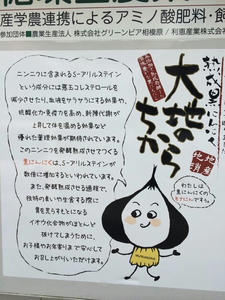 産学農連携によるアミノ酸肥料・飼
参加団体■農業生産法人 株式会社グリーンピア相模原 / 利恵産業株式会社
熟成黒にんにく
大地のちから
地産地消
ニンニクに含まれるS-アリルステイン
という成分には悪玉コレステロールを
減少させたり、血液をサラサラにする効果や、
抗酸化や免疫を高め、新陳代謝が
上昇して体を温める効果など
優れた薬理効果が期待されています。
このニンニクを発酵熟成させてつくる
黒にんにくは、S-アリルステインが
数倍に増加するといわれています。
また、発酵熟成させる過程で、
独特の臭いや生食する際に
胃を荒らすもととになる
イオウ化合物がほとんど
抜けてしまうために、
お子様やお年寄りまで安心して
お召し上がりいただけます。
わたしは
黒にんにくの
です。